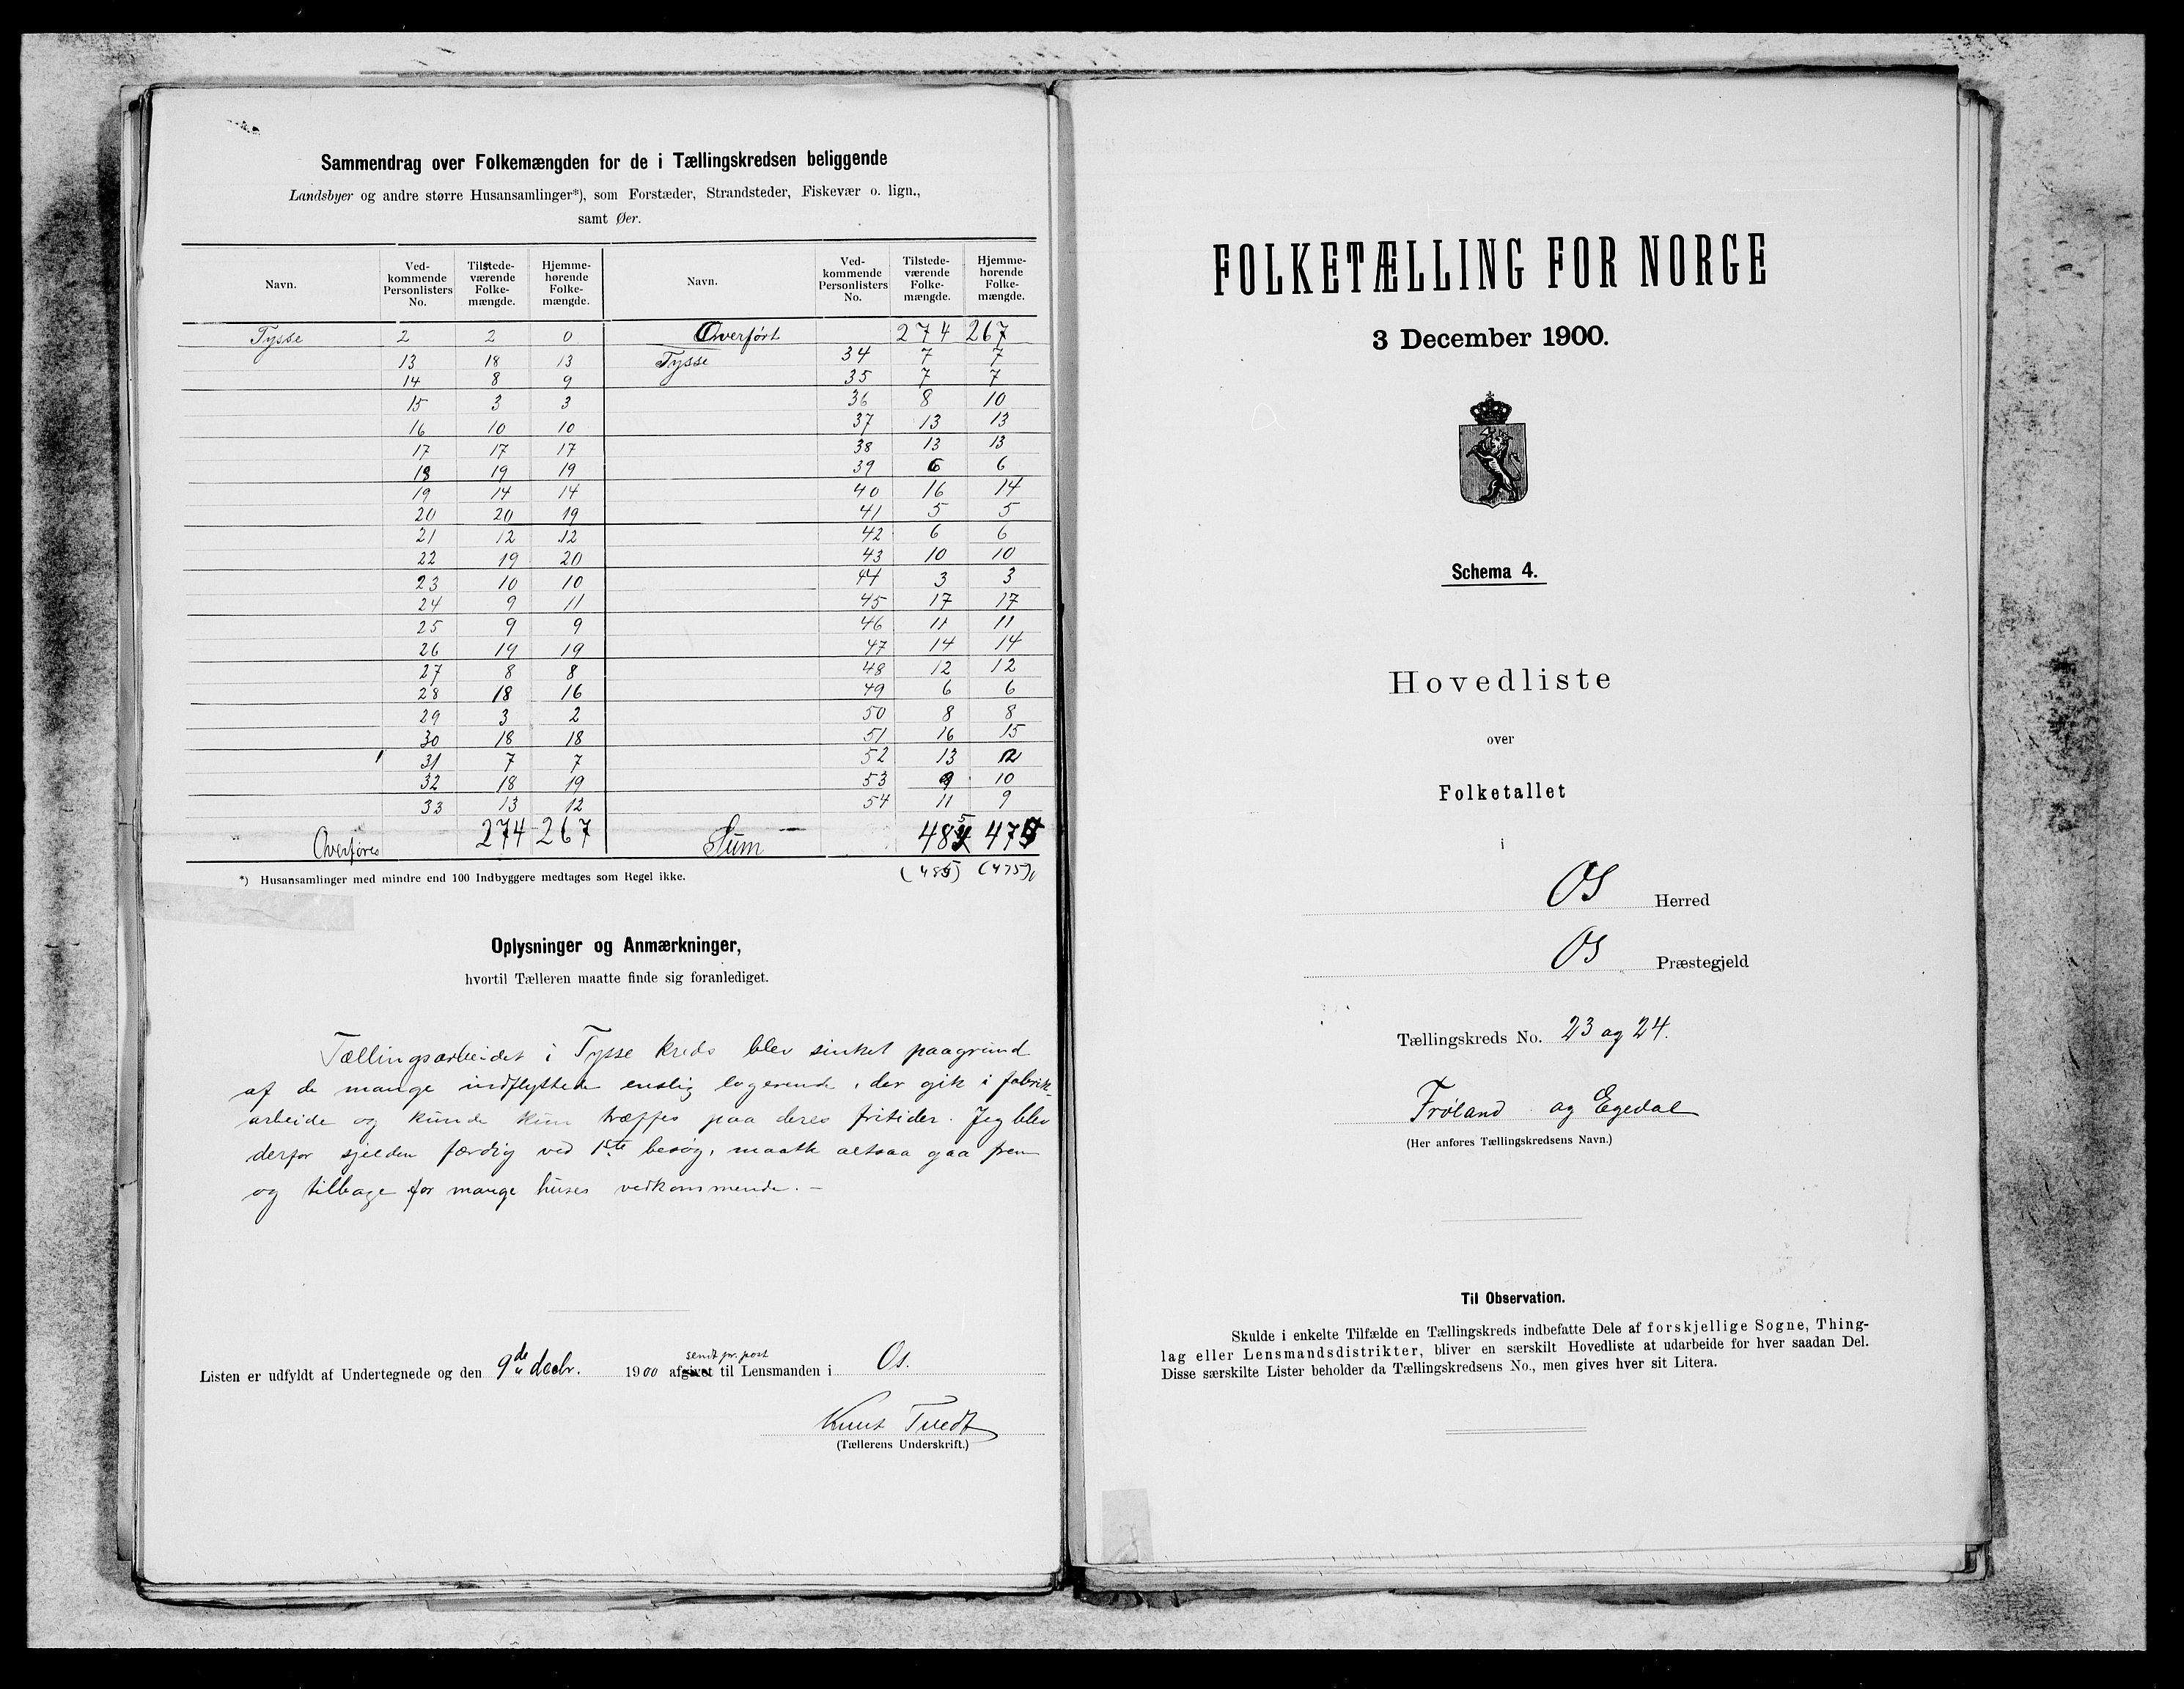 Sammendrag over Folkemængden for de i Tællingskredsen beliggende
Landsbyer og andre større Husansamlinger*), som Forstæder, Strandsteder, Fiskevær o. lign.,
samt Øer.
Navn. Ved-kommende Personlisters No. Tilstede-værende Folke-mængde. Hjemme-hørende Folke-mængde. Navn. Ved-kommende Personlisters No. Tilstede-værende Folke-mængde. Hjemme-hørende Folke-mængde.
Tysse 2 2 0 Overført 274 267
13 18 13 Tysse 34 7 7
14 8 9 35 7 7
15 3 3 36 8 10
16 10 10 37 13 13
17 17 17 38 13 13
18 19 19 39 6 6
19 14 14 40 16 14
20 20 19 41 5 5
21 12 12 42 6 6
22 19 20 43 10 10
23 10 10 44 3 3
24 9 11 45 17 17
25 9 9 46 11 11
26 19 19 47 14 14
27 8 8 48 12 12
28 18 16 49 6 6
29 3 2 50 8 8
30 18 18 51 16 15
31 7 7 52 13 12
32 18 19 53 9 10
33 13 12 54 11 9
Overføres 274 267 Sum 485 475
(485) (475)
*) Husansamlinger med mindre end 100 Indbyggere medtages som Regel ikke.
Oplysninger og Anmærkninger,
hvortil Tælleren maatte finde sig foranlediget.
Tællingsarbeidet i Tysse kreds blev sinket paagrund
af de mange indflyttede enslig logerende, der gik i fabrik-
arbeide og kunde kun træffes paa deres fritider. Jeg blev
derfor sjelden færdig ved 1ste besøg, maatte altsaa gaa frem
og tilbage for mange huses vedkommende. –
sendt pr. post
Listen er udfyldt af Undertegnede og den 9de decbr. 1900 afgivet til Lensmanden i Os.
Knut Tvedt
(Tællerens Underskrift.)
FOLKETÆLLING FOR NORGE
3 December 1900.
Schema 4.
Hovedliste
over
Folketallet
i
Os Herred
Os Præstegjeld
Tællingskreds No. 23 og 24.
Frøland og Egedal
(Her anføres Tællingskredsens Navn.)
Til Observation.
Skulde i enkelte Tilfælde en Tællingskreds indbefatte Dele af forskjellige Sogne, Thing-
lag eller Lensmandsdistrikter, bliver en særskilt Hovedliste at udarbeide for hver saadan Del.
Disse særskilte Lister beholder da Tællingskredsens No., men gives hver sit Litera.